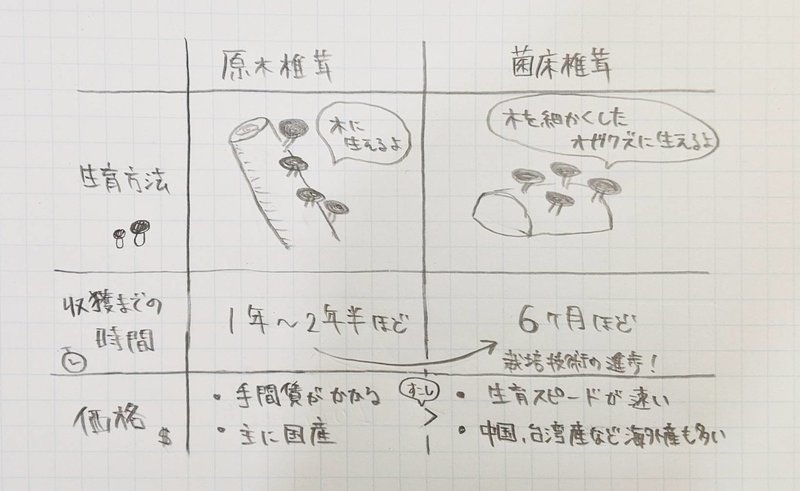 原木椎茸
菌床椎茸
生育方法
木に
生えるよ
木を細かくした
オガクズに生えるよ
収穫までの
時間
1年〜2年半ほど
6ヶ月ほど
栽培技術の進歩！
価格
$
・手間賃がかかる
・主に国産
すこし
>
・生育スピードが速い
・中国、台湾産など海外産も多い